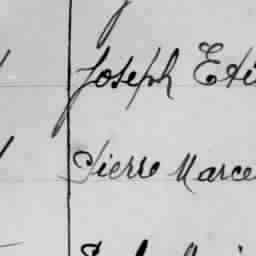 Joseph Eti
Pierre Marce